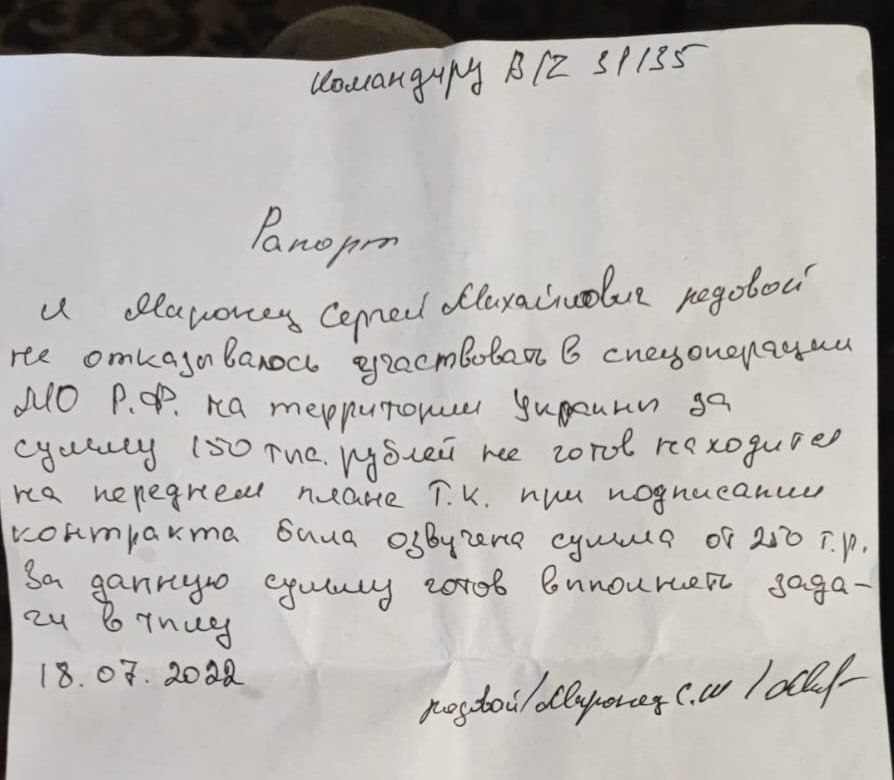 Командиру В/Z 31135
Рапорт
Я Миронец Сергей Михайлович редовой
не отказывалось участвовать в спецоперации
МО Р.Ф. на территории Украины за
сумму 150 тис. рублей не готов находится
на переднем плане т.к. при подписании
контракта била озвучена сумма от 250 т.р.
За данную сумму готов виполнять зада-
чи в тилу
18.07.2022
редовой/Миронец С.М /